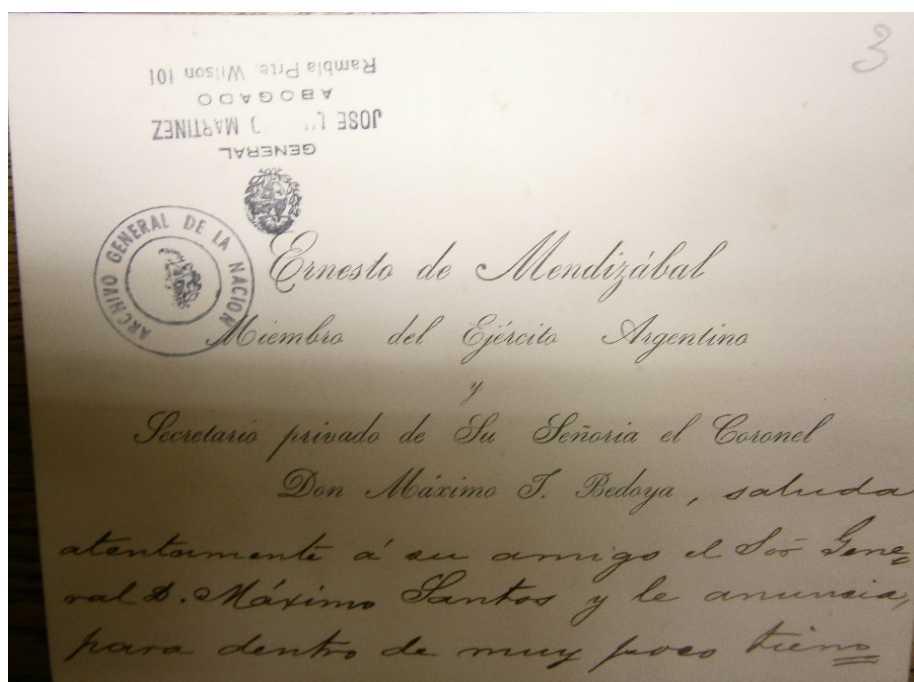 3
Rambla Prte. Wilson 101
ABOGADO
JOSE MARTINEZ
GENERAL
ARCHIVO GENERAL DE LA NACION
Ernesto de Mendizábal
Miembro del Ejército Argentino
y
Secretario privado de Su Señoria el Coronel
Don Máximo T. Bedoya, saluda
atentamente á su amigo el Sor Gene=
ral D. Máximo Santos y le anuncia,
para dentro de muy poco tiem